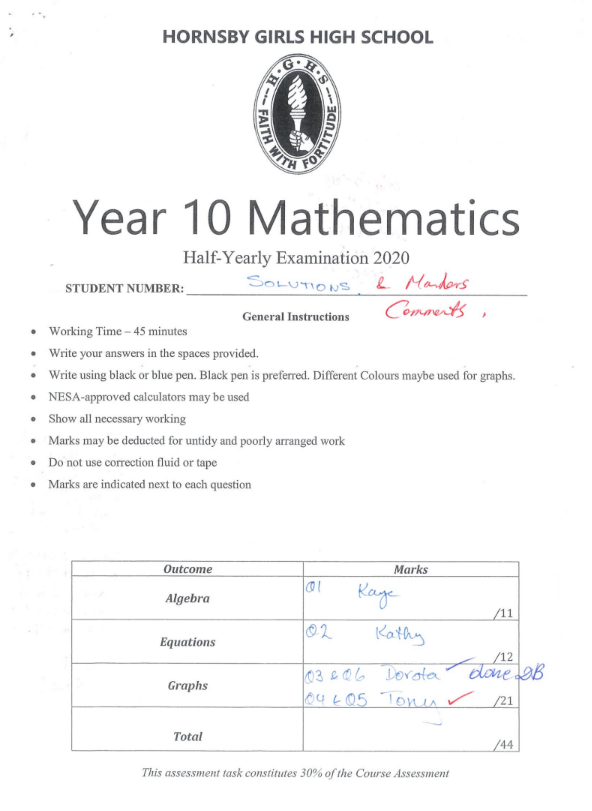 HORNSBY GIRLS HIGH SCHOOL
H·G·H·S
FAITH WITH FORTITUDE
Year 10 Mathematics
Half-Yearly Examination 2020
STUDENT NUMBER: SOLUTIONS & Markers
General Instructions Comments.
• Working Time – 45 minutes
• Write your answers in the spaces provided.
• Write using black or blue pen. Black pen is preferred. Different Colours maybe used for graphs.
• NESA-approved calculators may be used
• Show all necessary working
• Marks may be deducted for untidy and poorly arranged work
• Do not use correction fluid or tape
• Marks are indicated next to each question
Outcome Marks
Algebra Q1 Kaye /11
Equations Q2 Kathy /12
Graphs Q3 & Q6 Dorota ✓ done DB
Q4 & Q5 Tony ✓ /21
Total /44
This assessment task constitutes 30% of the Course Assessment